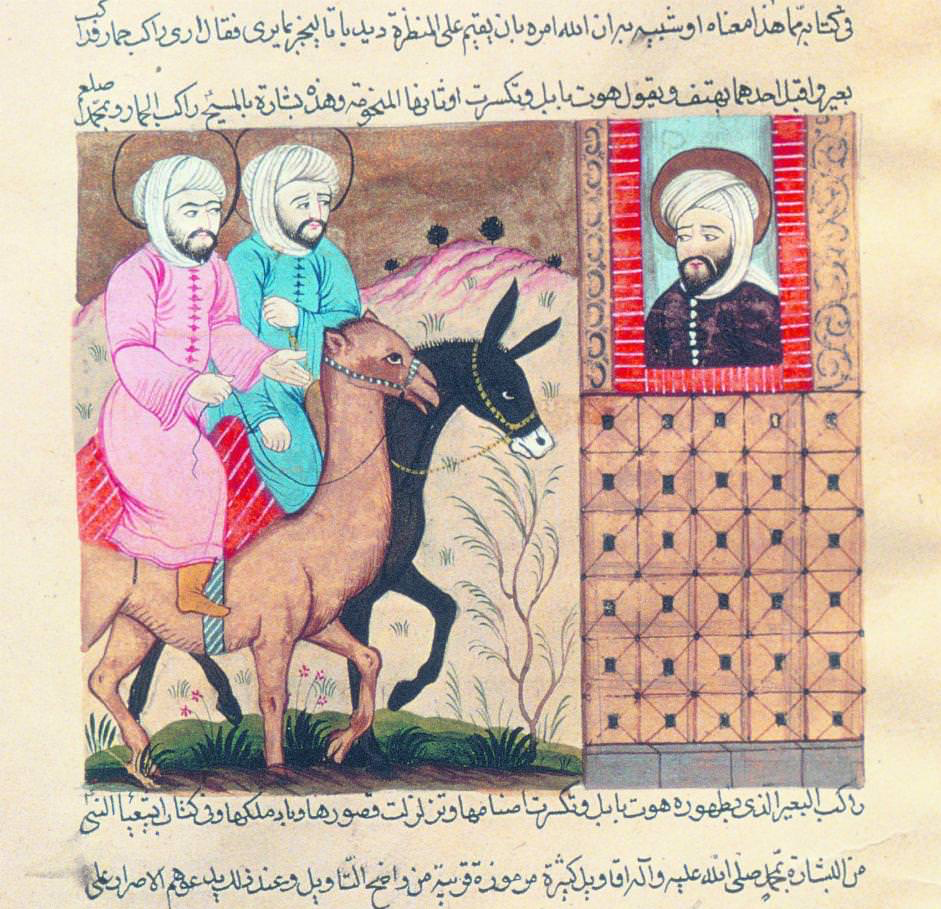 في كتابه مما هذا معناه او شبيه به ان الله امره بان يقيم على المنظرة ديدبانا ليخبر بما يرى فقال ارى راكب حمار وراكب
بعير واقبل احدهما يهتف ويقول هوت بابل وتكسرت اوثانها المنخوتة وهذه بشارة بالمسيح راكب الحمار وبمحمد صلعم
راكب البعير الذى بظهوره هوت بابل وتكسرت اصنامها وتزلزلت قصورها وباد ملكها وفى كتاب النبى
من البشارة بمحمد صلى الله عليه وآله اقاويل كثيرة مرموزة قريبة من واضح التاويل وعند ذلك يدعوهم الاصرار على